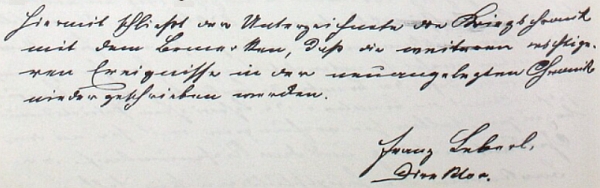 Hiermit schließt der Unterzeichnete die Kriegschronik
mit dem Bemerken, daß die weiteren wichtige-
ren Ereignisse in der neuangelegten Chronik
niedergeschrieben werden.
Franz Leberl,
Direktor.